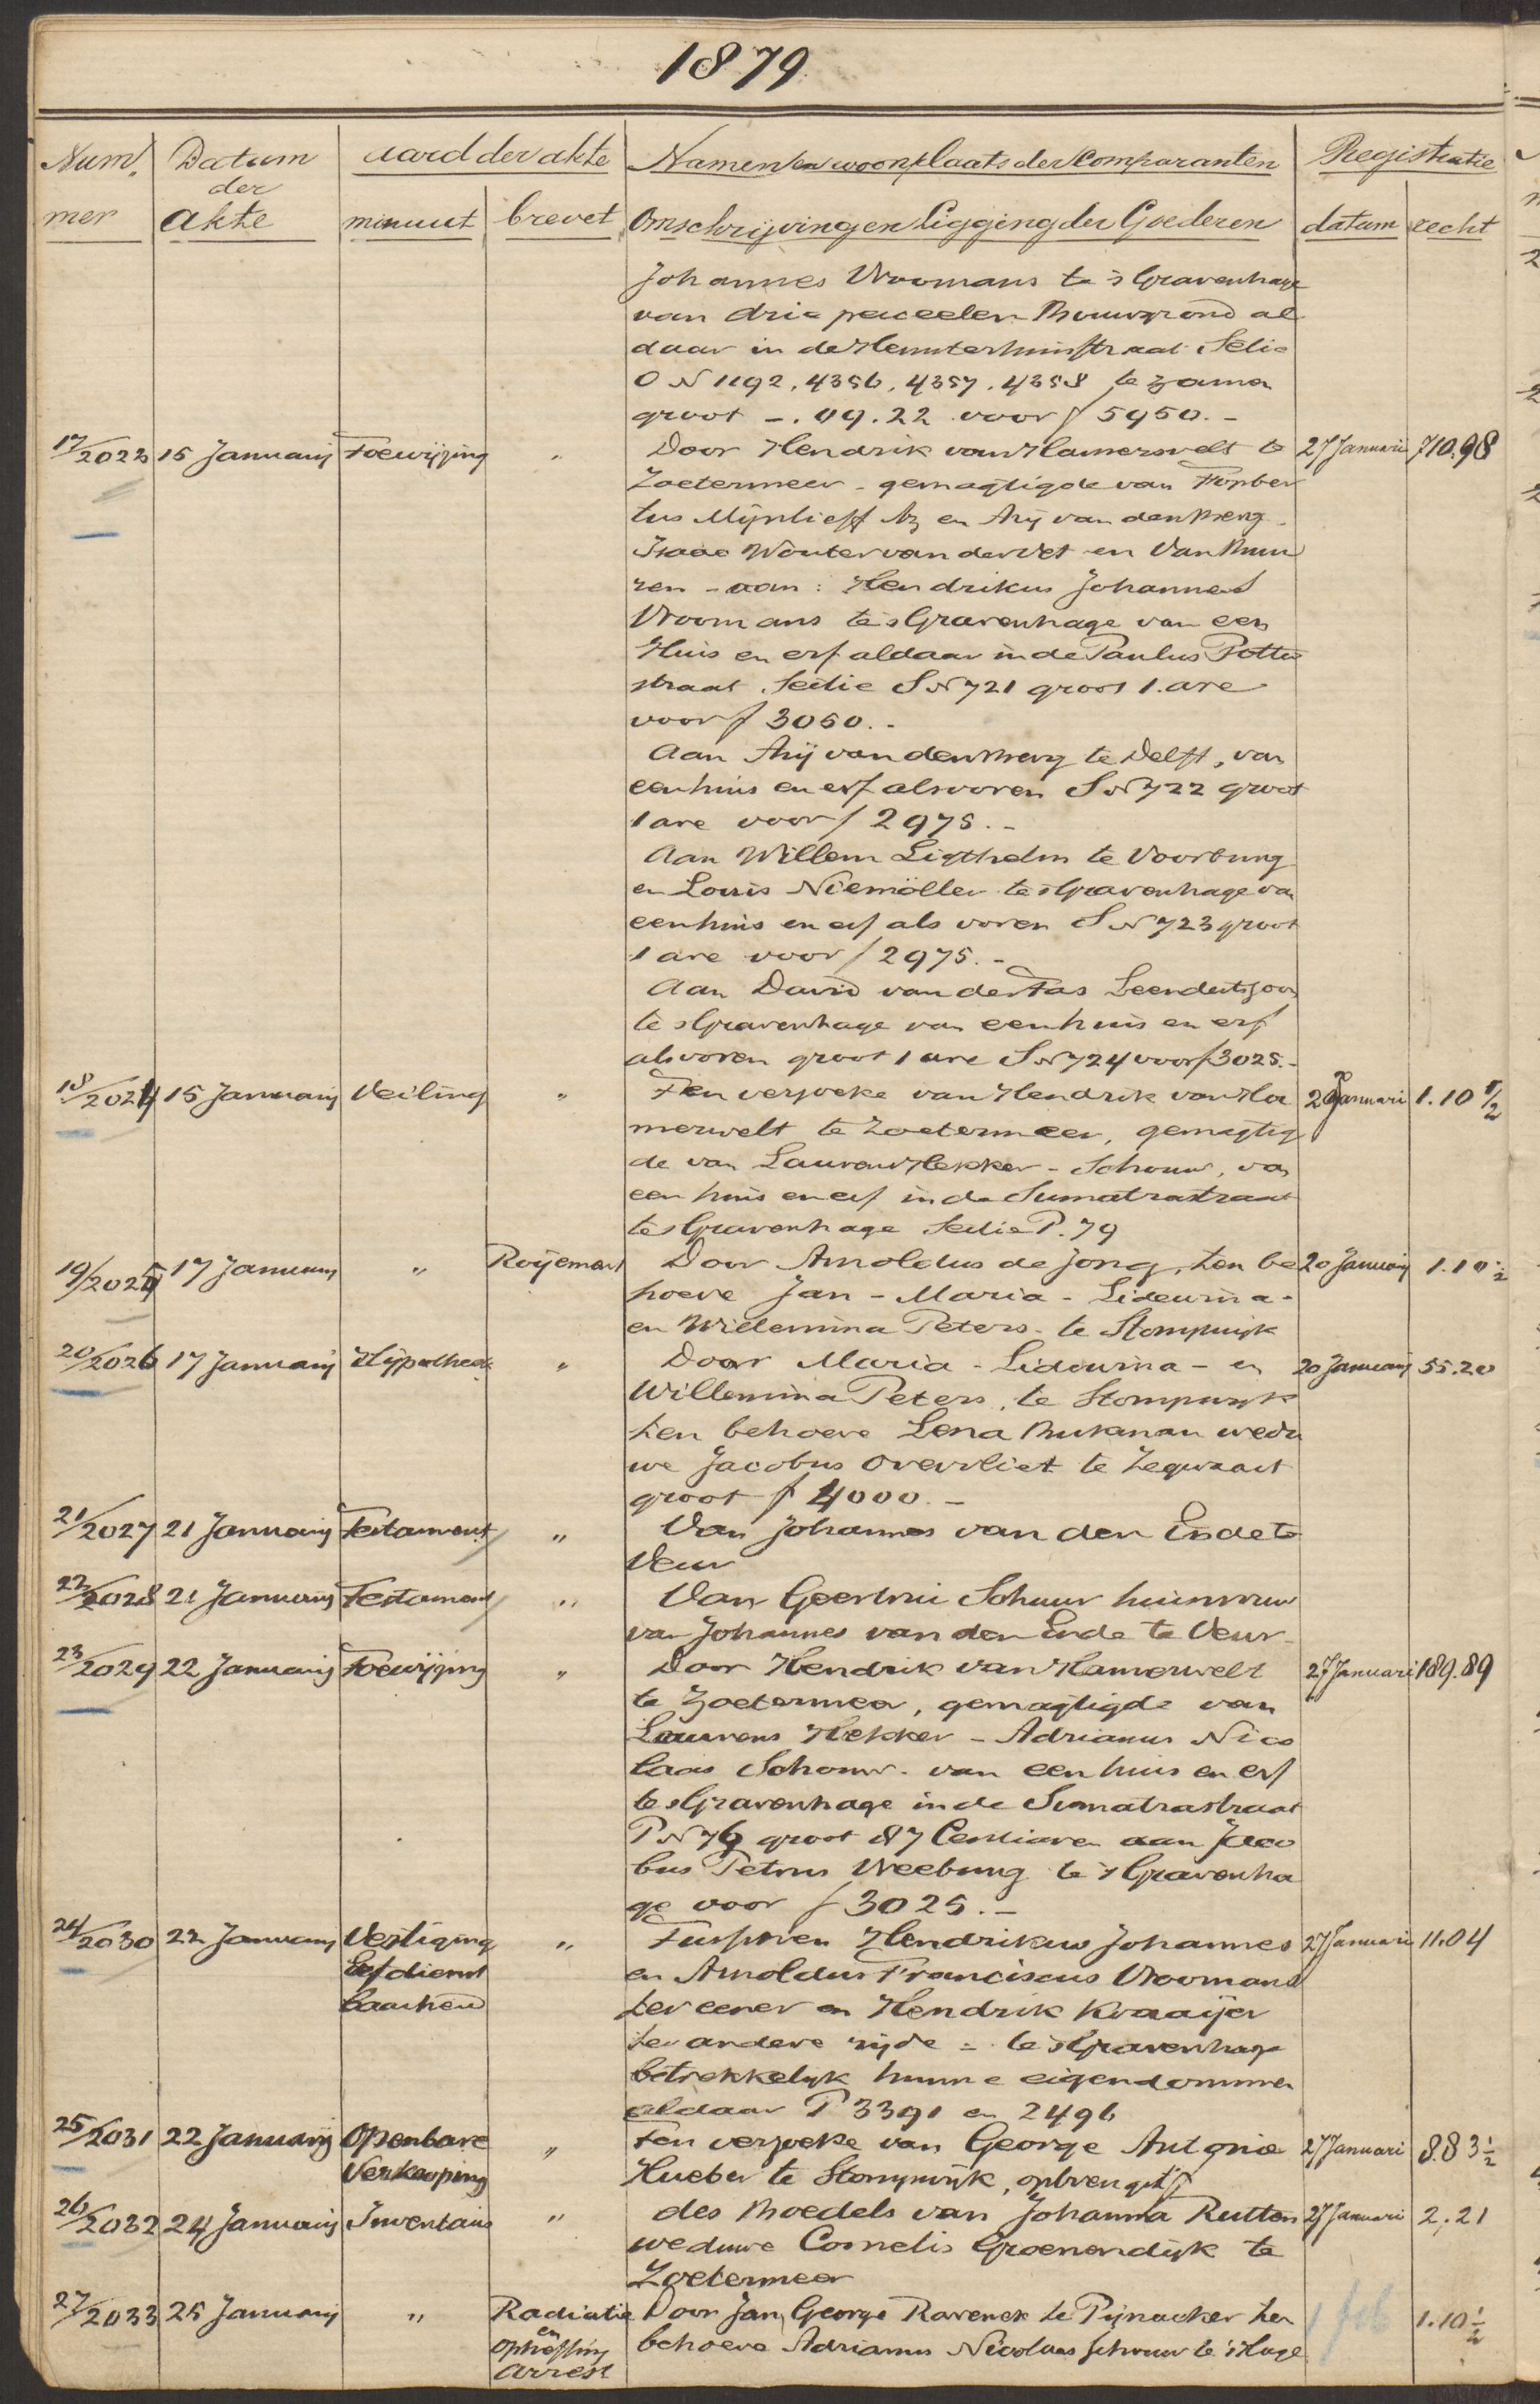 1879.
Num/ Datum aard der akte Namen en woonplaats der Comparanten Registratie
der
mer akte minuut brevet Omschrijving en Ligging der Goederen datum recht
Johannes Vroomans te 's Gravenhage
van drie perceelen Bouwgrond al
daar in de Hemsterhuisstraat Sectie
O N 1192, 4356, 4357, 4358 te zamen
groot -. 09.22 voor f 5950.-
17/2023 15 Januarij Toewijzing " Door Hendrik van Hamersvelt te 27 Januari 710.98
Zoetermeer - gemagtigde van
tus Mijnlieff Az en Arij van den Berg
Isaac Wouter van der Vet en Van Buu
ren - aan: Hendrikus Johannes
Vroomans te 's Gravenhage van een
Huis en erf aldaar in de Paulus Potter
straat, Sectie S N 721 groot 1. are
voor f 3050.-
Aan Arij van den Berg te Delft, van
een huis en erf als voren S N 722 groot
1 are voor f 2975.-
Aan Willem Ligthelm te Voorburg
en Louis Niemöller te 's Gravenhage van
een huis en erf als voren S N 723 groot
1 are voor f 2975.-
Aan David van der Tas Leendertszoon
te 's Gravenhage van een huis en erf
als voren groot 1 are S N 724 voor f 3025.-
18/2024 15 Januarij Veiling " Ten verzoeke van Hendrik van Ha 20 Januari 1.10 1/2
merwelt te Zoetermeer, gemagtig
de van Laurens Hekker - Schouw, van
een huis en erf in de Sumatrastraat
te 's Gravenhage Sectie P. 79
19/2025 17 Januarij " Roijement Door Arnoldus de Jong, ten be 20 Januarij 1.10 1/2
hoeve Jan - Maria - Lidewina -
en Willemina Peters - te Stompwijk
20/2026 17 Januarij Hijpotheek " Door Maria - Lidewina - en 20 Januarij 55.20
Willemina Peters, te Stompwijk
ten behoeve Lena Bukman wedu
we Jacobus Overvliet te Zegwaart
groot f 4000.-
21/2027 21 Januarij Testament " Van Johannes van den Ende te
Veur
22/2028 21 Januarij Testament " Van Geertrui Schuur huisvrouw
van Johannes van den Ende te Veur
23/2029 22 Januarij Toewijzing " Door Hendrik van Hamerwelt 27 Januari 189.89
te Zoetermeer, gemagtigde van
Laurens Hekker - Adrianus Nico
laas Schouw - van een huis en erf
te 's Gravenhage in de Sumatrastraat
P N 79 groot 87 Centiaren aan Jaco
bus Petrus Vreeburg te 's Gravenha
ge voor f 3025.-
24/2030 22 Januarij Vestiging " Tusschen Hendrikus Johannes 27 Januari 11.04
Erfdienst en Arnoldus Franciscus Vroomans
baarheid ter eener en Hendrik Kraaijer
ter andere zijde - te 's Gravenhage
betrekkelijk hunne eigendommen
aldaar P 3391 en 2496
25/2031 22 Januarij Openbare " Ten verzoeke van George Antonie 27 Januari 8.83 1/2
Verkooping Hueber te Stompwijk, opbrengst f
26/2032 24 Januarij Inventaris " des Boedels van Johanna Rutten 27 Januari 2,21
weduwe Cornelis Groenendijk te
Zoetermeer
27/2033 25 Januarij " Radiatie Door Jan George Ravenek te Pijnacker ten 1 feb 1.10 1/2
en
opheffing behoeve Adrianus Nicolaas Schouw te 's Hage
arrest